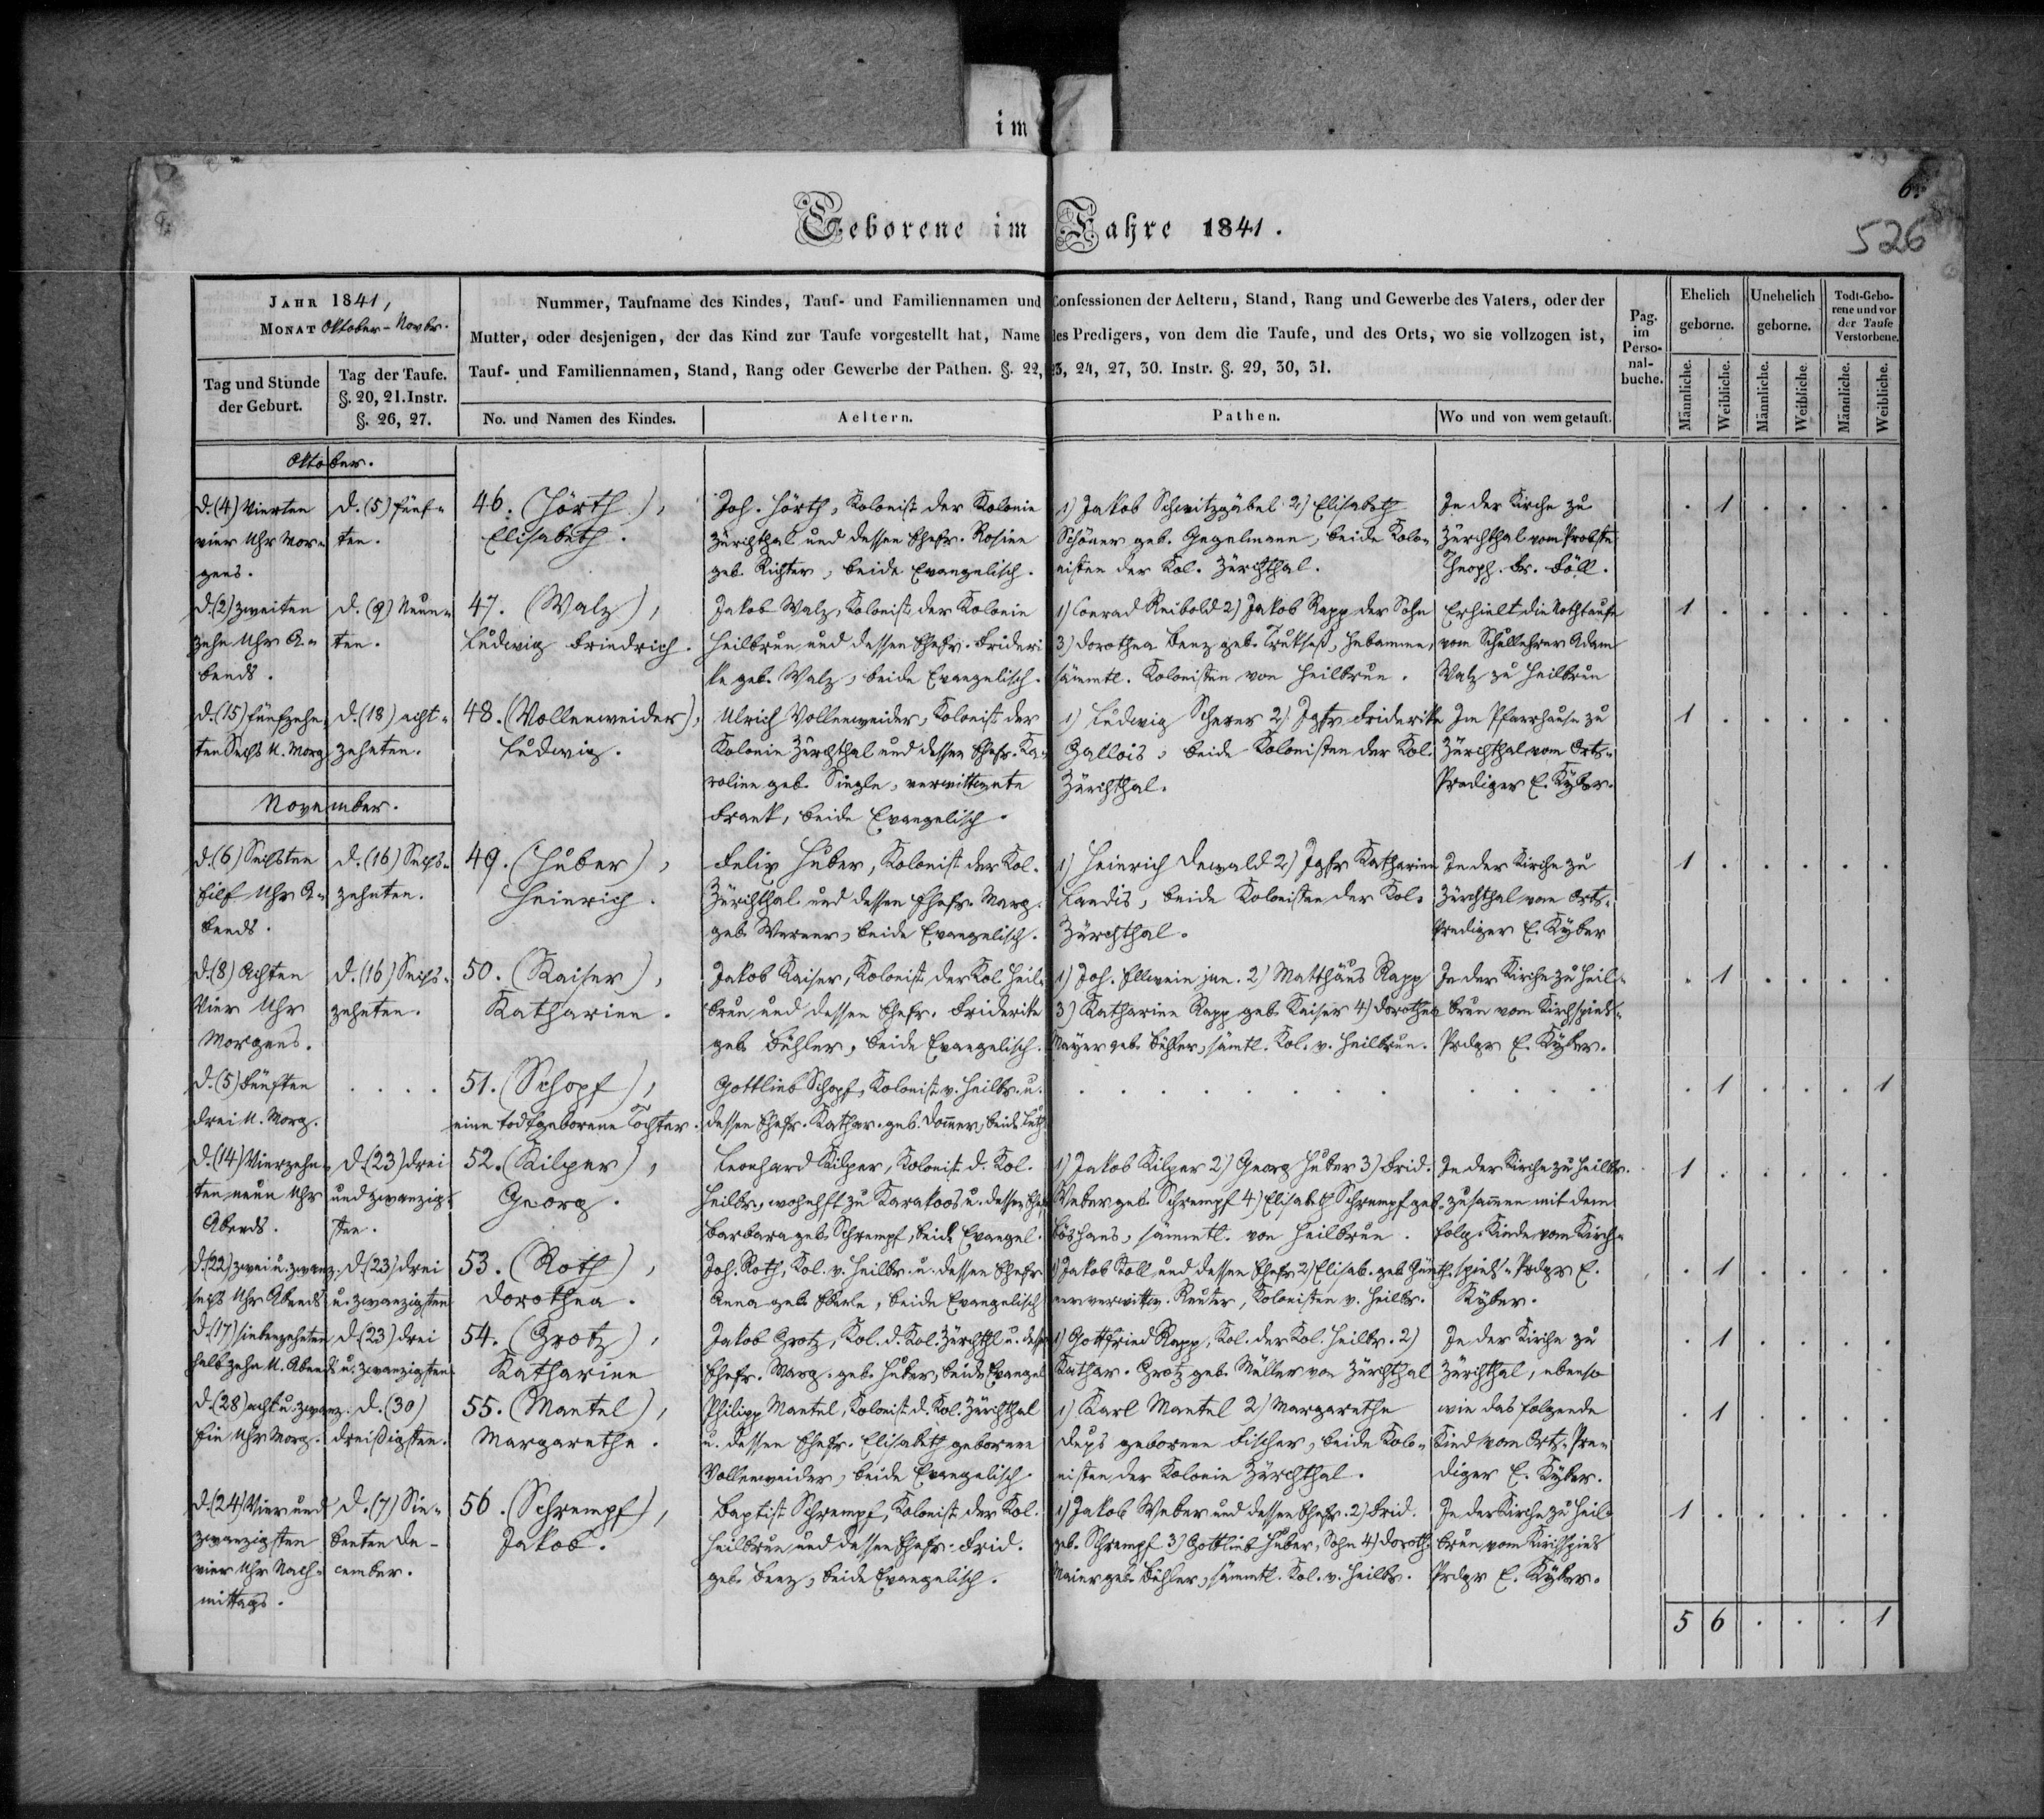 im
6.
526
Geborene im Jahre 1841.
JAHR 1841,
MONAT Oktober-Novbr.
Tag und Stunde
der Geburt.
Tag der Taufe.
§. 20, 21. Instr.
§. 26, 27.
Nummer, Taufname des Kindes, Tauf- und Familiennamen und Confessionen der Aeltern, Stand, Rang und Gewerbe des Vaters, oder der
Mutter, oder desjenigen, der das Kind zur Taufe vorgestellt hat, Name des Predigers, von dem die Taufe, und des Orts, wo sie vollzogen ist,
Tauf- und Familiennamen, Stand, Rang oder Gewerbe der Pathen. §. 22, 23, 24, 27, 30. Instr. §. 29, 30, 31.
No. und Namen des Kindes.
Aeltern.
Pathen.
Wo und von wem getauft.
Pag.
im
Perso-
nal-
buche.
Ehelich
geborne.
Unehelich
geborne.
Todt-Gebo-
rene und vor
der Taufe
Verstorbene.
Männliche.
Weibliche.
Männliche.
Weibliche.
Männliche.
Weibliche.
Oktober.
d. (4) Vierten
vier Uhr Mor-
gens.
d. (5) fünf-
ten.
46. (Hörth),
Elisabeth.
Joh. Hörth, Kolonist der Kolonie
Zürchthal und dessen Ehefr. Rosine
geb. Richter, beide Evangelisch.
1) Jakob Schwitzgäbel 2) Elisabeth
Schöner geb. Gegelmann, beide Kolo-
nisten der Kol. Zürchthal.
In der Kirche zu
Zürchthal vom Probste
Theoph. Fr. Föll.
. 1 . . . .
d. (2) zweiten
zehn Uhr A-
bends.
d. (9) Neun-
ten.
47. (Walz),
Ludwig Friedrich.
Jakob Walz, Kolonist der Kolonie
Heilbrun und dessen Ehefr. Frideri
ke geb. Walz, beide Evangelisch.
1) Conrad Reibold 2) Jakob Rapp der Sohn
3) Dorothea Benz geb. Truksess, Hebamme,
sämmtl. Kolonisten von Heilbrun.
Erhielt die Nothtaufe
vom Schullehrer Adam
Walz zu Heilbrun
1 . . . . .
d. (15) fünfzehn-
ten Sechs U. Morg.
d. (18) acht-
zehnten.
48. (Vollenweider),
Ludwig.
Ulrich Vollenweider, Kolonist der
Kolonie Zürchthal und dessen Ehefr. Ka-
roline geb. Siegle, verwittwete
Frank, beide Evangelisch.
1) Ludwig Scherer 2) Jgfr Friderike
Gallois, beide Kolonisten der Kol.
Zürchthal.
Im Pfarrhause zu
Zürchthal vom Orts-
Prediger E. Kyber.
1 . . . . .
November.
d. (6) Sechsten
Eilf Uhr A-
bends.
d. (16) Sechs-
zehnten.
49. (Huber),
Heinrich.
Felix Huber, Kolonist der Kol.
Zürchthal und dessen Ehefr. Marg.
geb. Werner, beide Evangelisch.
1) Heinrich Dewald 2) Jgfr Katharine
Landis, beide Kolonisten der Kol.
Zürchthal.
In der Kirche zu
Zürchthal vom Orts-
Prediger E. Kyber
1 . . . . .
d. (8) Achten
Vier Uhr
Morgens.
d. (16) Sechs-
zehnten.
50. (Kaiser),
Katharine.
Jakob Kaiser, Kolonist der Kol. Heil-
brun und dessen Ehefr. Friderike
geb. Bühler, beide Evangelisch.
1) Joh. Ellwein jun. 2) Matthäus Rapp
3) Katharine Rapp geb. Kaiser 4) Dorothea
Mayer geb. Bühler, sämtl. Kol. v. Heilbrun.
In der Kirche zu Heil-
brun vom Kirchspiels-
Prdgr E. Kyber.
. 1 . . . .
d. (5) Fünften
drei U. Morg.
. . . .
51. (Schopf),
eine todtgeborene Tochter.
Gottlieb Schopf, Kolonist v. Heilbr. u.
dessen Ehefr. Kathar. geb. Domer, beide Luth.
. 1 . . . 1
d. (14) Vierzehn-
ten neun Uhr
Abends.
d. (23) drei
und zwanzig-
sten.
52. (Kilper),
Georg.
Leonhard Kilper, Kolonist d. Kol.
Heilbr., wohnhft zu Karakoos u. dessen Ehefr.
Barbara geb. Schrempf, beide Evangel.
1) Jakob Kilper 2) Georg Huber 3) Frid.
Weber geb. Schrempf 4) Elisabeth Schrempf geb.
Böshans, sämmtl. von Heilbrun.
In der Kirche zu Heilbr.
zusammen mit dem
folg. Kinde vom Kirch-
1 . . . . .
d. (22) zwei u. zwanz.
sechs Uhr Abends
d. (23) drei
u. zwanzigsten
53. (Roth),
Dorothea.
Joh. Roth, Kol. v. Heilbr. u. dessen Ehefr.
Anna geb. Eberle, beide Evangelisch
1) Jakob Koll und dessen Ehefr. 2) Elisab. geb. Günth-
ner verwittw. Reuter, Kolonisten v. Heilbr.
spiels-Prdgr E.
Kyber.
. 1 . . . .
d. (17) siebenzehnten
halb zehn U. Abends
d. (23) drei
u. zwanzigsten
54. (Grotz),
Katharine
Jakob Grotz, Kol. d. Kol. Zürchthl u. dess.
Ehefr. Marg. geb. Huber, beide Evangel
1) Gottfried Rapp, Kol. der Kol. Heilbr. 2)
Kathar. Grotz geb. Müller von Zürchthal
In der Kirche zu
Zürchthal, ebenso
. 1 . . . .
d. (28) acht u. zwanz.
Ein Uhr Morg.
d. (30)
dreißigsten.
55. (Mantel),
Margarethe.
Philipp Mantel, Kolonist d. Kol. Zürchthal
u. dessen Ehefr. Elisabeth geborene
Vollenweider, beide Evangelisch.
1) Karl Mantel 2) Margarethe
Dups geborene Fischer, beide Kolo-
nisten der Kolonie Zürchthal.
wie das folgende
Kind vom Orts-Pre-
diger E. Kyber.
. 1 . . . .
d. (24) Vier und
zwanzigsten
vier Uhr Nach-
mittags.
d. (7) Sie-
benten De-
cember.
56. (Schrempf),
Jakob.
Baptist Schrempf, Kolonist der Kol.
Heilbrun und dessen Ehefr. Frid.
geb. Benz, beide Evangelisch.
1) Jakob Weber und dessen Ehefr. 2) Frid.
geb. Schrempf 3) Gottlieb Huber, Sohn 4) Doroth.
Maier geb. Bühler, sämmtl. Kol. v. Heilbr.
In der Kirche zu Heil-
brun vom Kirchspiels
Prdgr E. Kyber.
1 . . . . .
5 6 . . . 1